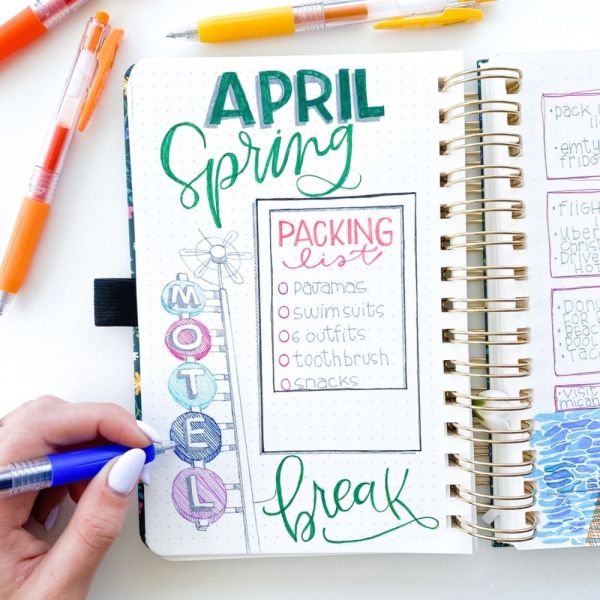 APRIL
Spring
PACKING
list
pajamas
swimsuits
6 outfits
toothbrush
snacks
MOTEL
break
• pack
• emty
fridg
• fligh
• uber
• christ
• Drive
Hot
• Donu
for
beac
pool
taco
• visit
micah